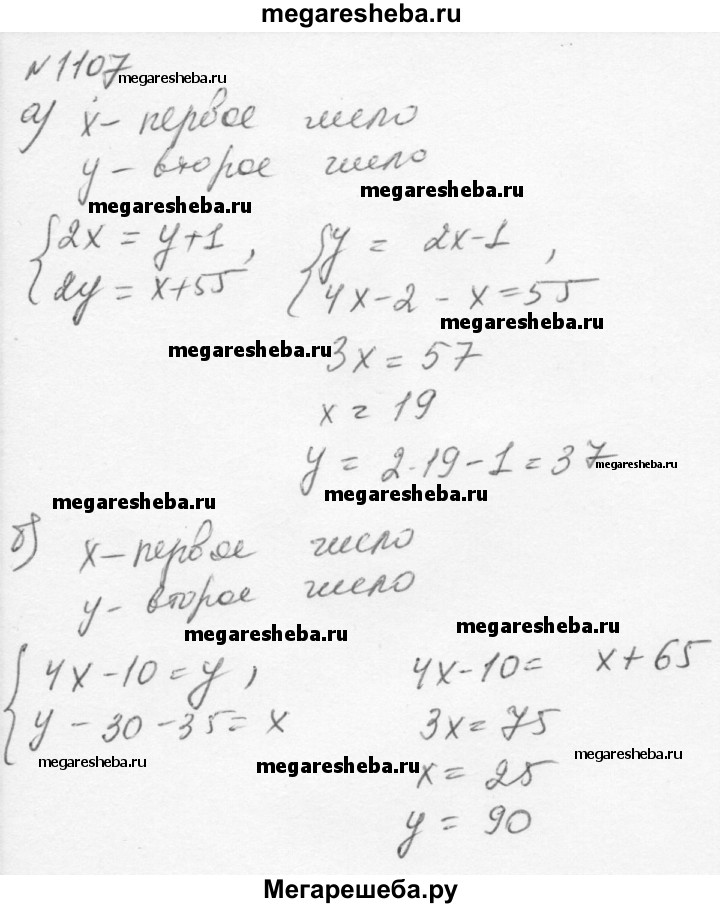 megaresheba.ru
№1107
megaresheba.ru
а) x - первое число
y - второе число
megaresheba.ru
megaresheba.ru
{2x = y+1, {y = 2x-1,
2y = x+55 4x-2-x=55
megaresheba.ru
megaresheba.ru
3x = 57
x = 19
y = 2·19-1=37
megaresheba.ru
megaresheba.ru
megaresheba.ru
б) x - первое число
y - второе число
megaresheba.ru
megaresheba.ru
{4x-10=y, 4x-10= x+65
y-30-35= x 3x=75
megaresheba.ru
megaresheba.ru
megaresheba.ru
x= 25
y = 90
Мегарешеба.ру